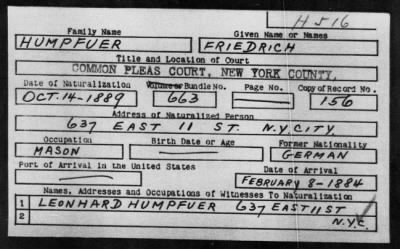 H516
Family Name Given Name or Names
HUMPFUER FRIEDRICH
Title and Location of Court
COMMON PLEAS COURT, NEW YORK COUNTY.
Date of Naturalization Volume or Bundle No. Page No. Copy of Record No.
OCT.-14-1889 663 156
Address of Naturalized Person
637 EAST 11 ST. N.Y. CITY
Occupation Birth Date or Age Former Nationality
MASON GERMAN
Port of Arrival in the United States Date of Arrival
FEBRUARY 8-1884
Names, Addresses and Occupations of Witnesses To Naturalization
1 LEONHARD HUMPFUER 637 EAST 11 ST
2 N.Y.C.